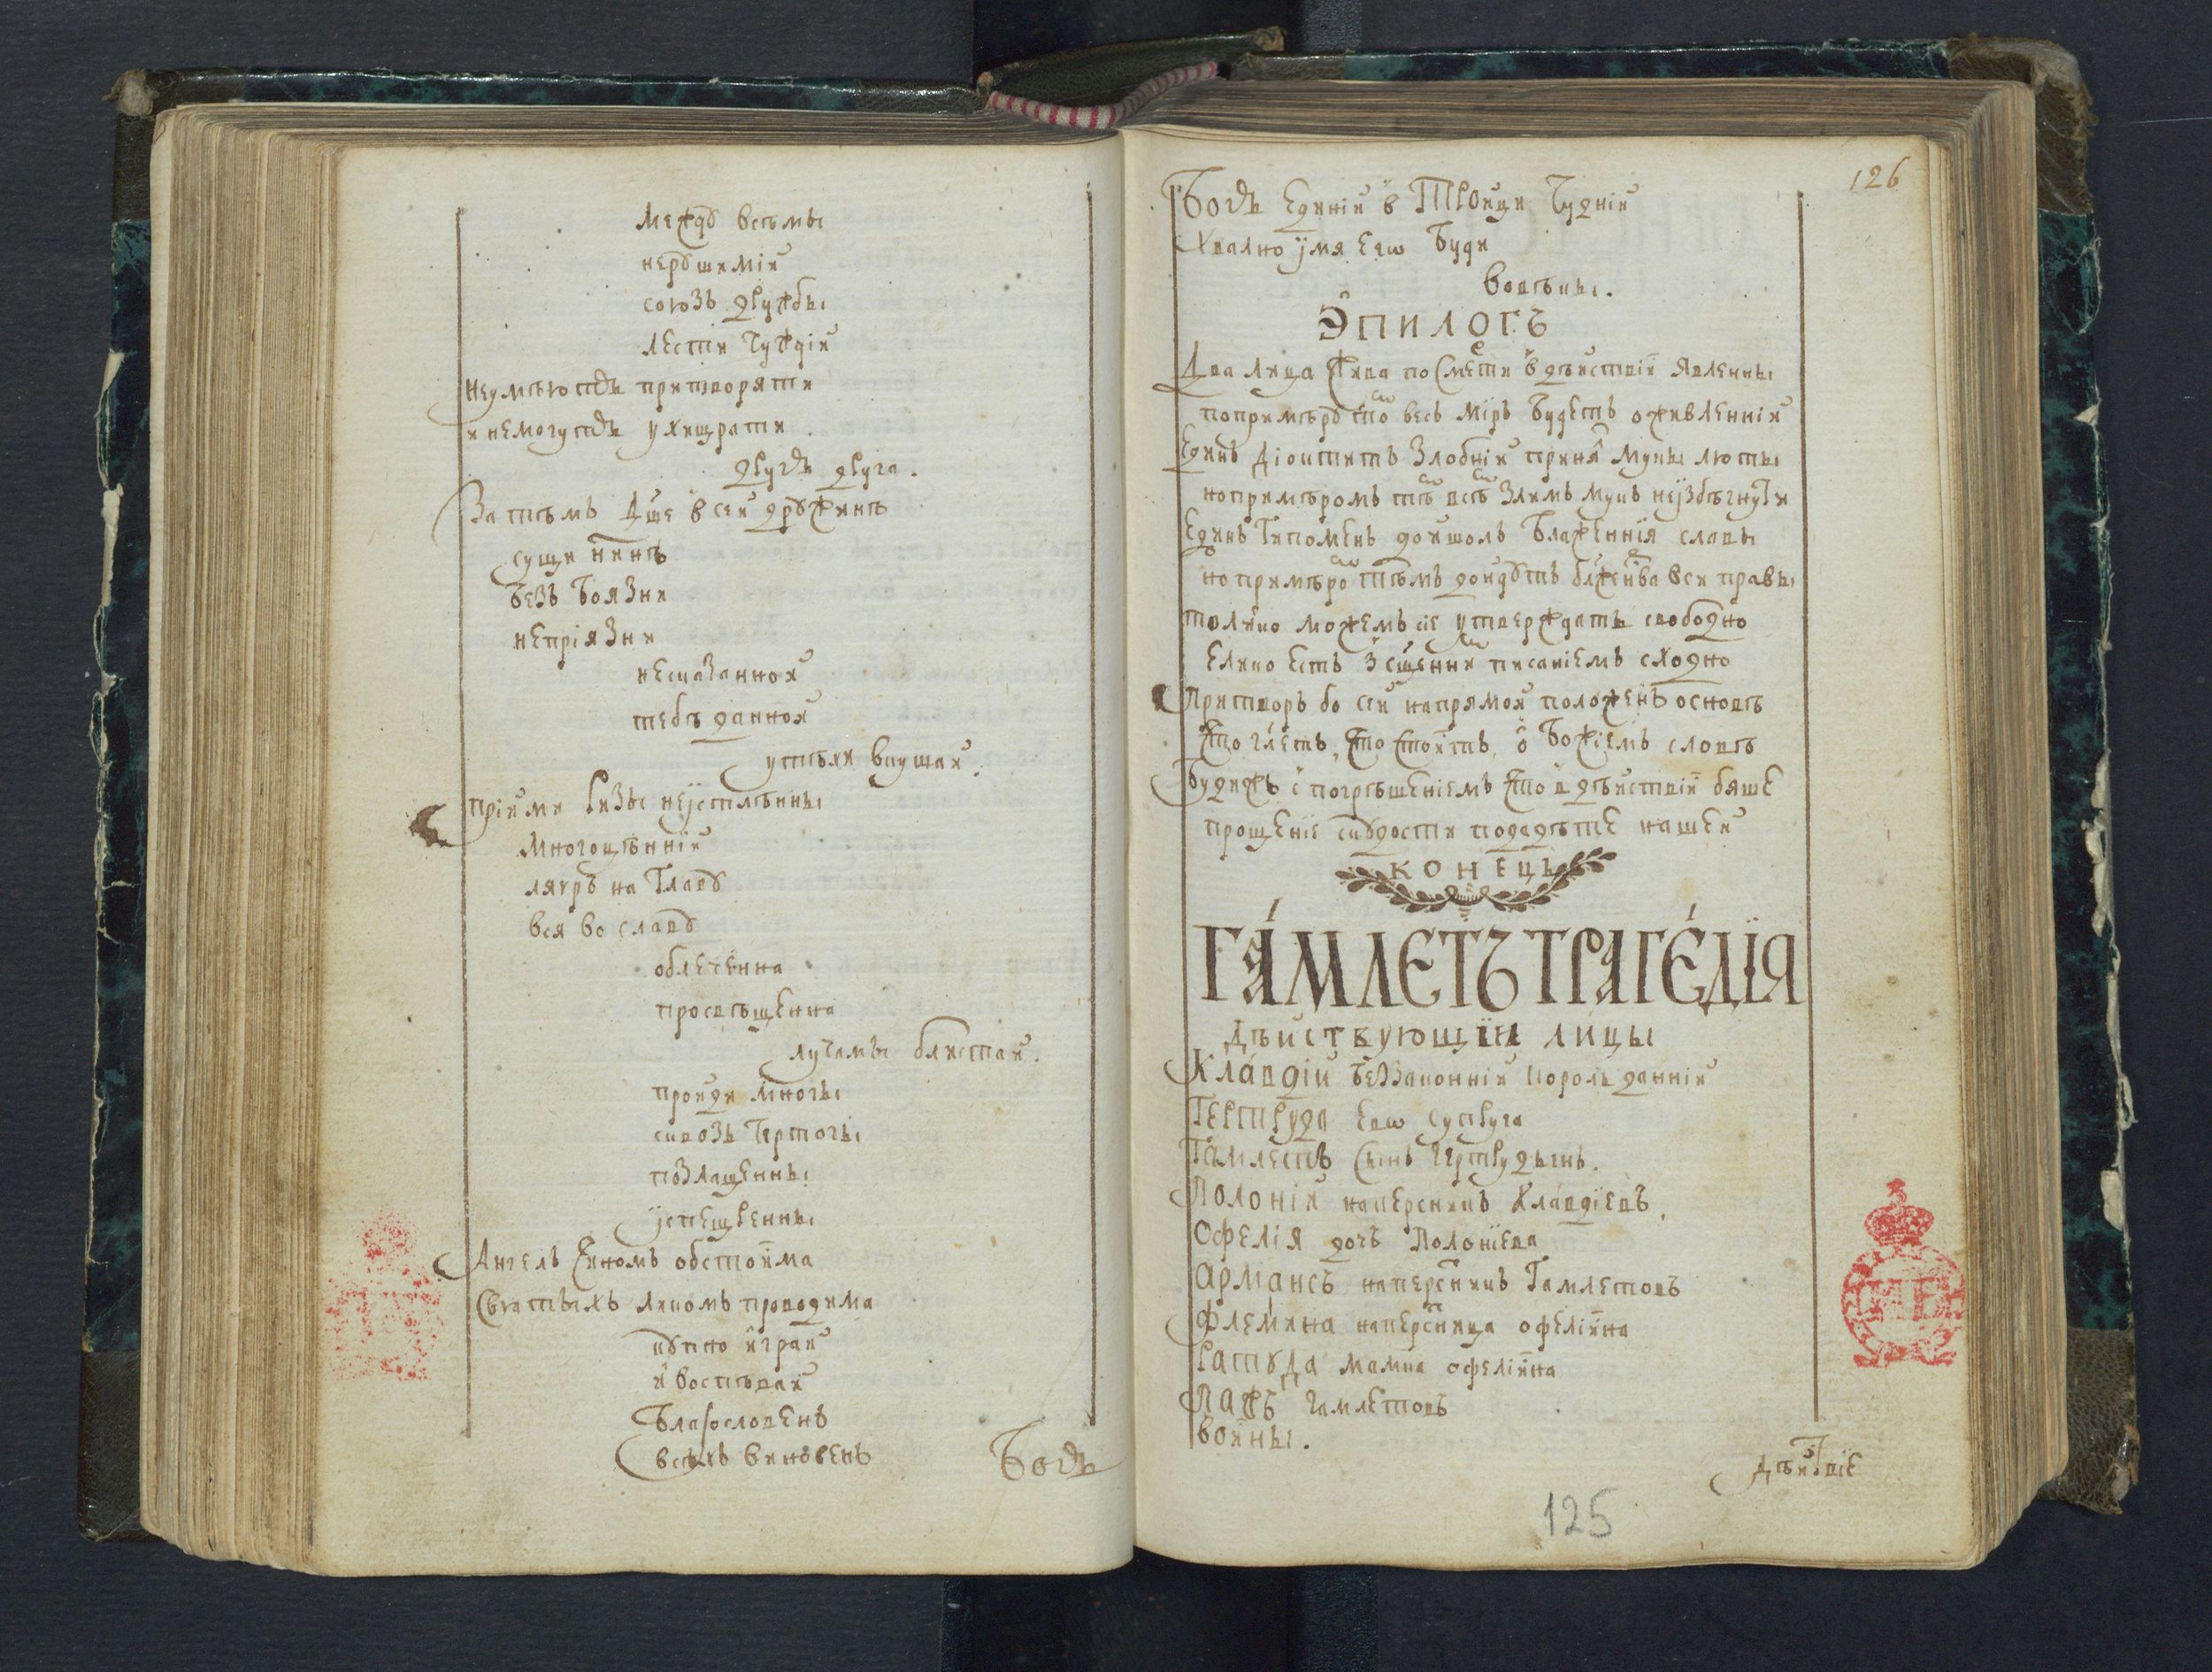 межꙋ всѣмы
нерꙋшимій
союзъ дружбы
лести чуждій
Неумѣютъ притворяти
и немогутъ ухищрати
другъ друга.
Затѣмъ Дше в сей дрꙋжинѣ
сущи нинѣ
безъ боязни
непріязни
несказанной
тебѣ данной
утѣхи вкушай.
Пріими ризы неистлѣнны
многоцѣнній
лявръ на главꙋ
вся во славꙋ
облеченна
просвѣщенна
лучамы блистай.
пройди многы
сквозь чертогы
позлащенны
испещренны
Ангелъ чиномъ обстоима
Святыхъ ликомъ проводима
кꙋпно играй
и воспѣвай
Благословенъ
всѣхъ виновенъ
Богъ
126
Богъ единій в Троици чудній
Хвално имя его буди
вовѣки.
ЭПИЛОГЪ
Два лица жива по смерти в дѣйствіи явленны
попримѣрꙋ то весь міръ будетъ оживленній
Единъ Діоктитъ злобній приня муки люты
но примѣромъ тѣ всѣ злимъ мукъ неизбѣгнути
Единъ Гипоменъ дойшолъ блаженнія славы
но примѣро тѣмъ дойдꙋтъ блженва вси правы
толико можемъ сіе утверждать свободно
елико есть з сщенни писаніемъ сходно
Притворъ бо сей напрямой положенъ основѣ
что глетъ, что стоитъ, о божіемъ словѣ
Будижъ с погрѣшеніемъ что в дѣйствіи бяше
прощеніе скꙋдости подадѣте нашей
КОНЕЦЪ
ГАМЛЕТЪ ТРАГЕДІЯ
Дѣйствующіи лицы
Клавдій беззаконній король данній
Гертруда его супруга
Гамлетъ Сынъ Гертрудынъ.
Полоній наперсникъ Клавдіевъ.
Офелія дочъ Полоніева
Армансъ наперсникъ Гамлетовъ
Флемина наперсница офеліина
Ратуда мамка офеліина
Пажъ гамлетовъ
Воины.
дѣйствіе
125